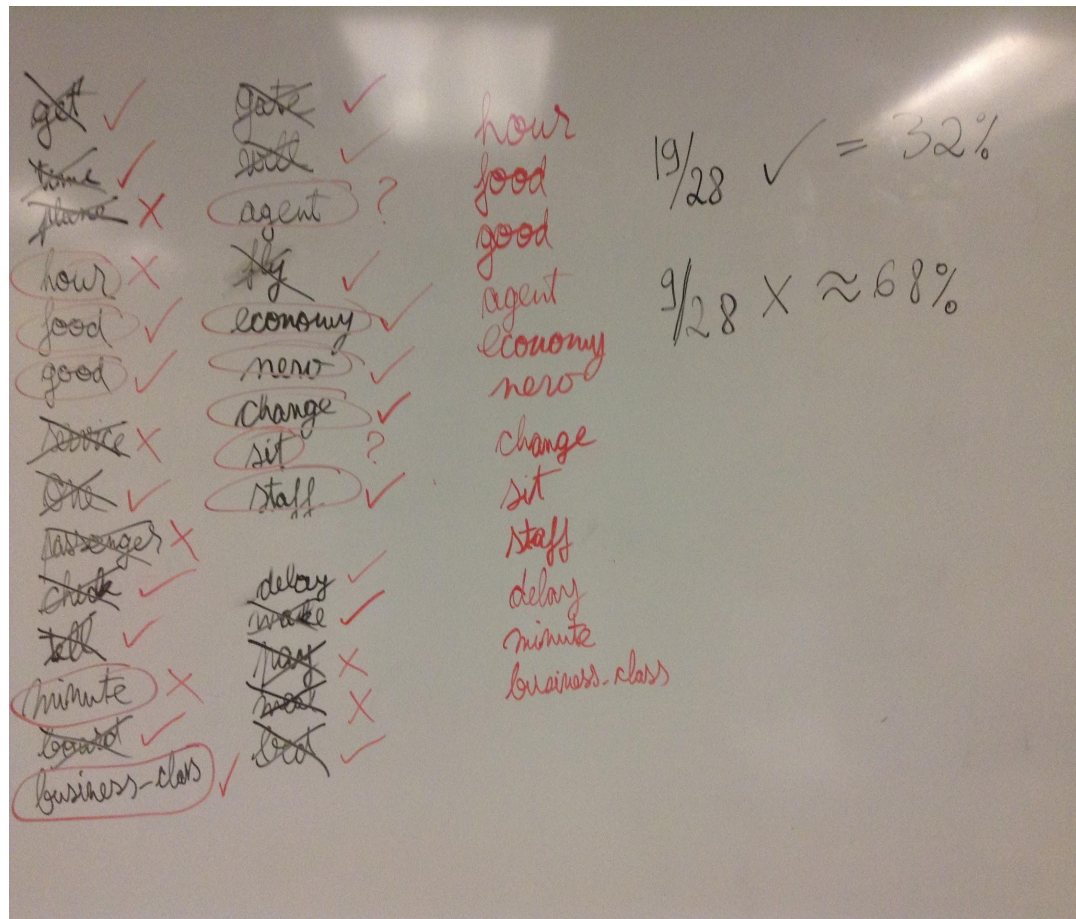 get ✓
time ✓
plane X
hour X
food ✓
good ✓
service X
one ✓
passenger X
check ✓
tell ✓
minute X
board ✓
business-class ✓
gate ✓
will ✓
agent ?
fly ✓
economy ✓
new ✓
change ✓
sit ?
staff ✓
delay ✓
make ✓
pay X
meal X
bed ✓
hour
food
good
agent
economy
new
change
sit
staff
delay
minute
business-class
19/28 ✓ = 32%
9/28 X ≈ 68%